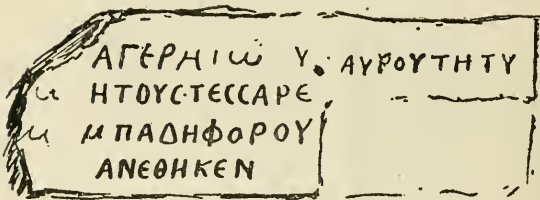 ΑΓΕΡΗΙω Υ. ΑΥΡΟΥΤΗΤΥ
ΗΤΟΥС·ΤΕССΑΡΕ
ΜΠΑΔΗΦΟΡΟΥ
ΑΝΕΘΗΚΕΝ